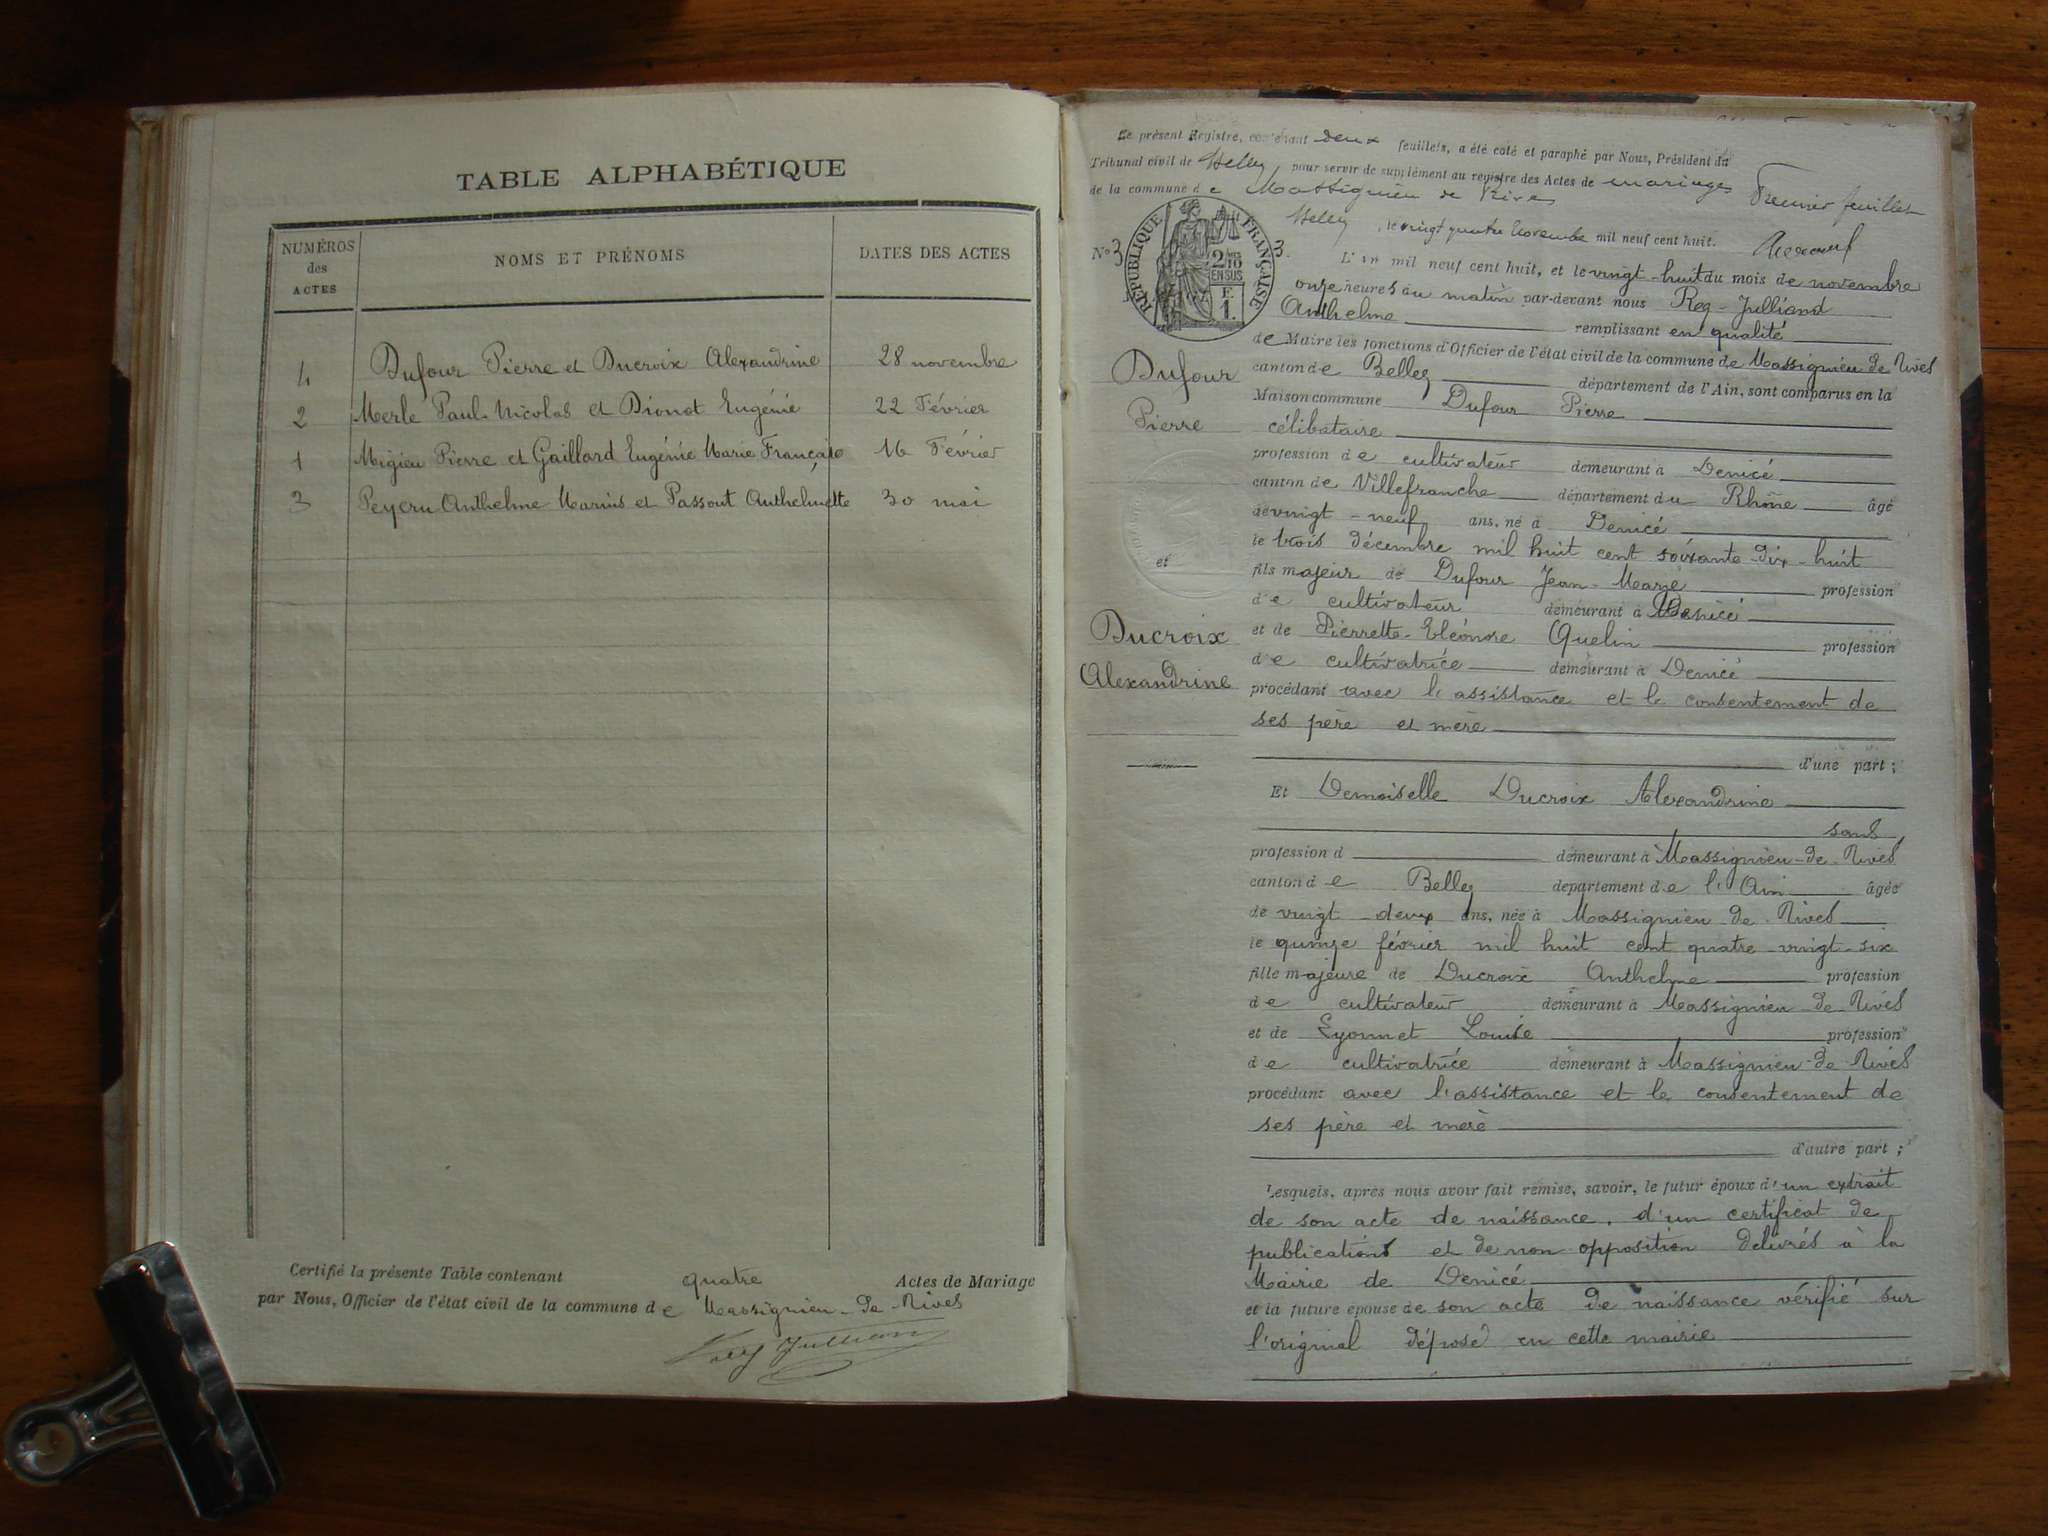 TABLE ALPHABÉTIQUE
NUMÉROS des ACTES
NOMS ET PRÉNOMS
DATES DES ACTES
4 Dufour Pierre et Ducroix Alexandrine 28 novembre
2 Merle Paul-Nicolas et Dionot Eugénie 22 Février
1 Migieu Pierre et Gaillard Eugénie Marie Françoise 16 Février
3 Peycru Anthelme Marius et Passout Anthelmette 30 mai
Certifié la présente Table contenant quatre Actes de Mariage
par Nous, Officier de l'état civil de la commune de Massignieu-de-Rives
Le présent Registre, contenant deux feuillets, a été coté et paraphé par Nous, Président du
Tribunal civil de Belley pour servir de supplément au registre des Actes de mariages
de la commune de Massignieu de Rives
Premier feuillet
Belley, le vingt quatre Novembre mil neuf cent huit.
RÉPUBLIQUE FRANÇAISE
2/10 EN SUS
F. 1.
N° 3
3
L'an mil neuf cent huit, et le vingt-huit du mois de novembre
onze heures du matin par-devant nous Rey-Julliand
Anthelme remplissant en qualité
de Maire les fonctions d'Officier de l'état civil de la commune de Massignieu de Rives
Dufour
Pierre
et
Ducroix
Alexandrine
canton de Belley département de l'Ain, sont comparus en la
Maison commune Dufour Pierre
célibataire
profession de cultivateur demeurant à Denicé
canton de Villefranche département du Rhône âgé
de vingt-neuf ans, né à Denicé
le trois décembre mil huit cent soixante-dix-huit
fils majeur de Dufour Jean-Marie profession
de cultivateur demeurant à Denicé
et de Pierrette-Eléonore Quelin profession
de cultivatrice demeurant à Denicé
procédant avec l'assistance et le consentement de
ses père et mère
d'une part;
Et Demoiselle Ducroix Alexandrine
sans
profession d demeurant à Massignieu-de-Rives
canton de Belley département de l'Ain âgée
de vingt-deux ans, née à Massignieu de Rives
le quinze février mil huit cent quatre vingt-six
fille majeure de Ducroix Anthelme profession
de cultivateur demeurant à Massignieu-de-Rives
et de Lyonnet Louise profession
de cultivatrice demeurant à Massignieu-de-Rives
procédant avec l'assistance et le consentement de
ses père et mère
d'autre part;
Lesquels, après nous avoir fait remise, savoir, le futur époux d'un extrait
de son acte de naissance, d'un certificat de
publications et de non-opposition délivrés à la
Mairie de Denicé
et la future épouse de son acte de naissance vérifié sur
l'original déposé en cette mairie